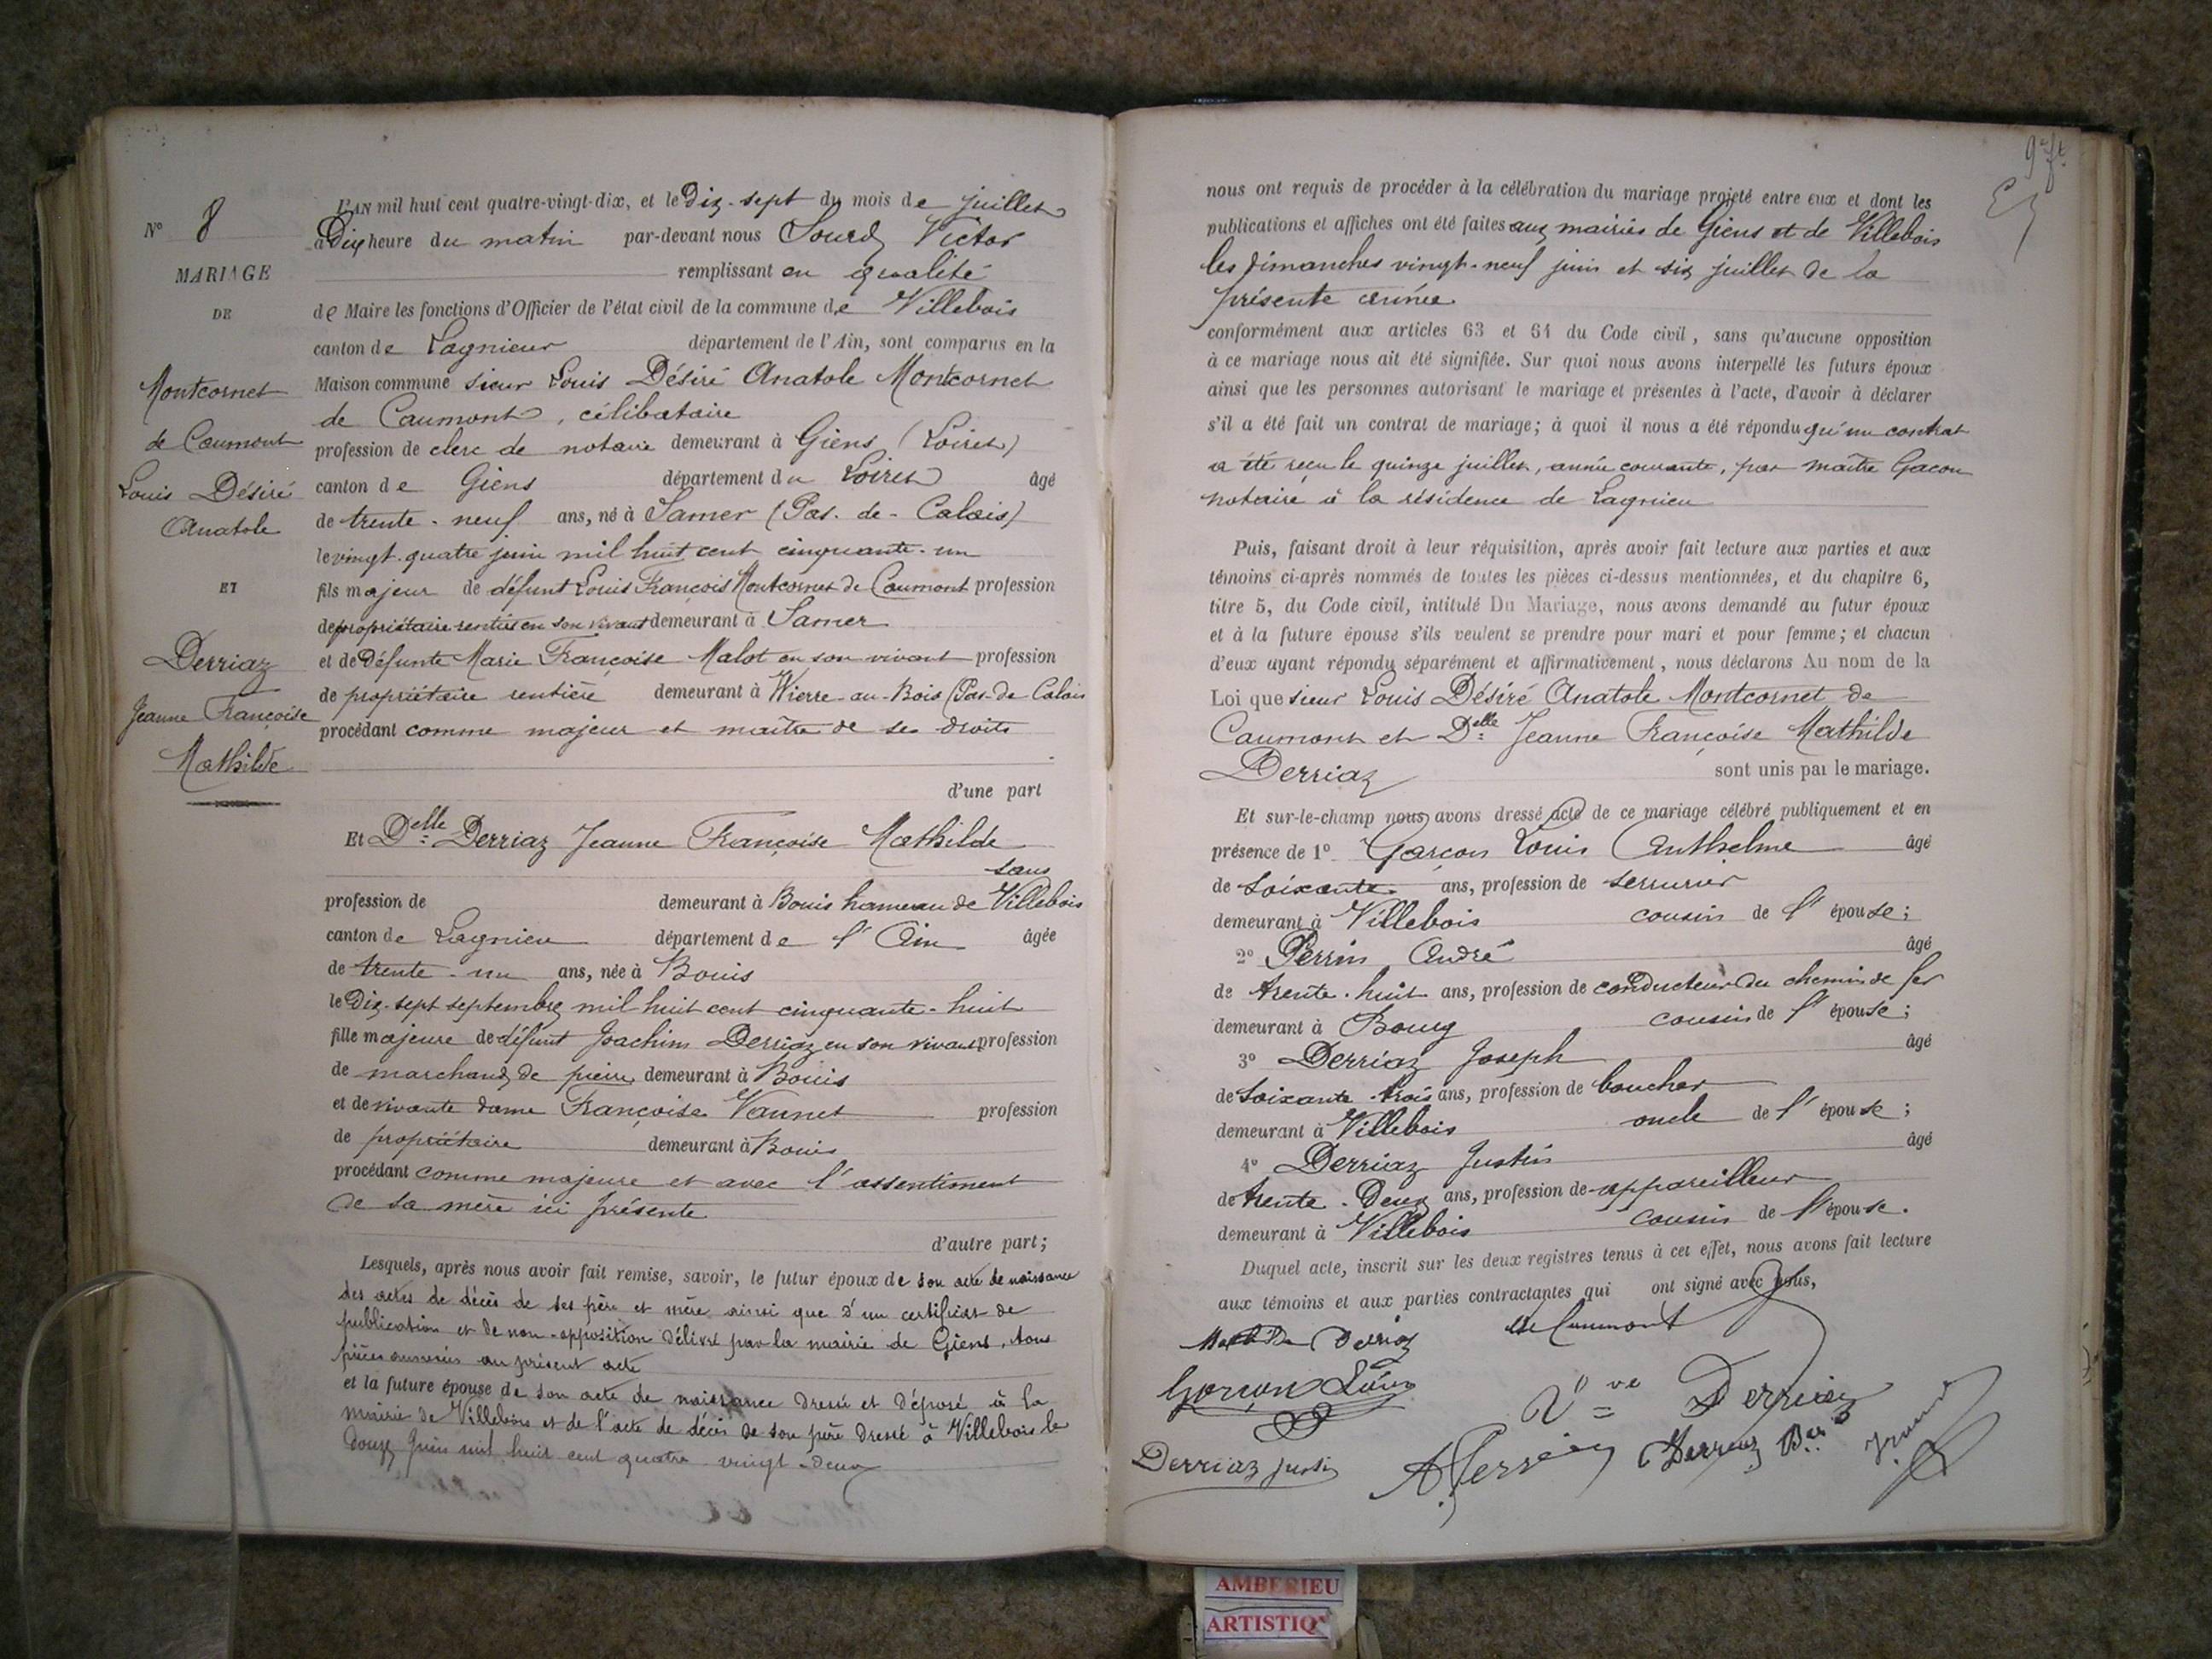 N° 8
MARIAGE
DE
Montcornet
de Caumont
Louis Désiré
Anatole
ET
Derriaz
Jeanne Françoise
Mathilde
L'AN mil huit cent quatre-vingt-dix, et le Dix-sept du mois de juillet
à Dix heure du matin par-devant nous Sourd Victor
remplissant en qualité
de Maire les fonctions d'Officier de l'état civil de la commune de Villebois
canton de Lagnieur département de l'Ain, sont comparus en la
Maison commune sieur Louis Désiré Anatole Montcornet
de Caumont, célibataire
profession de clerc de notaire demeurant à Giens (Loiret)
canton de Giens département du Loiret âgé
de trente-neuf ans, né à Samer (Pas-de-Calais)
le vingt-quatre juin mil huit cent cinquante-un
fils majeur de défunt Louis François Montcornet de Caumont profession
de propriétaire rentier en son vivant demeurant à Samer
et de Défunte Marie Françoise Malot en son vivant profession
de propriétaire rentière demeurant à Wierre-au-Bois (Pas-de Calais
procédant comme majeur et maître de ses droits
d'une part
Et Delle Derriaz Jeanne Françoise Mathilde
sans
profession de demeurant à Bouis hameau de Villebois
canton de Lagnieu département de l'Ain âgée
de trente-un ans, née à Bouis
le Dix-sept septembre mil huit cent cinquante-huit
fille majeure de défunt Joachim Derriaz en son vivant profession
de marchand de pierre demeurant à Bouis
et de vivante dame Françoise Vannet profession
de propriétaire demeurant à Bouis
procédant comme majeure et avec l'assentiment
de sa mère ici présente
d'autre part;
Lesquels, après nous avoir fait remise, savoir, le futur époux de son acte de naissance
des actes de décès de ses père et mère ainsi que d'un certificat de
publication et de non-opposition délivré par la mairie de Giens, tous
pièces annexées au présent acte
et la future épouse de son acte de naissance dressé et déposé à la
mairie de Villebois et de l'acte de décès de son père dressé à Villebois le
douze juin mil huit cent quatre vingt-deux
nous ont requis de procéder à la célébration du mariage projeté entre eux et dont les
publications et affiches ont été faites aux mairies de Giens et de Villebois
les dimanches vingt-neuf juin et six juillet de la
présente année
conformément aux articles 63 et 64 du Code civil, sans qu'aucune opposition
à ce mariage nous ait été signifiée. Sur quoi nous avons interpellé les futurs époux
ainsi que les personnes autorisant le mariage et présentes à l'acte, d'avoir à déclarer
s'il a été fait un contrat de mariage; à quoi il nous a été répondu qu'un contrat
a été reçu le quinze juillet, année courante, par maître Gacon
notaire à la résidence de Lagnieu
Puis, faisant droit à leur réquisition, après avoir fait lecture aux parties et aux
témoins ci-après nommés de toutes les pièces ci-dessus mentionnées, et du chapitre 6,
titre 5, du Code civil, intitulé Du Mariage, nous avons demandé au futur époux
et à la future épouse s'ils veulent se prendre pour mari et pour femme; et chacun
d'eux ayant répondu séparément et affirmativement, nous déclarons Au nom de la
Loi que sieur Louis Désiré Anatole Montcornet de
Caumont et Delle Jeanne Françoise Mathilde
Derriaz sont unis par le mariage.
Et sur-le-champ nous avons dressé acte de ce mariage célébré publiquement et en
présence de 1° Garçon Louis Anthelme âgé
de Soixante ans, profession de serrurier
demeurant à Villebois cousin de l'épouse;
2° Perrin André âgé
de trente-huit ans, profession de conducteur du chemin de fer
demeurant à Bourg cousin de l'épouse;
3° Derriaz Joseph âgé
de soixante-trois ans, profession de boucher
demeurant à Villebois oncle de l'épouse;
4° Derriaz Justin âgé
de trente-Deux ans, profession de appareilleur
demeurant à Villebois cousin de l'épouse.
Duquel acte, inscrit sur les deux registres tenus à cet effet, nous avons fait lecture
aux témoins et aux parties contractantes qui ont signé avec nous,
Mathilde Derriaz de Caumont
Garçon Louis
Vve Derriaz
Derriaz Justin A Perrin Derriaz
AMBERIEU
ARTISTIQ